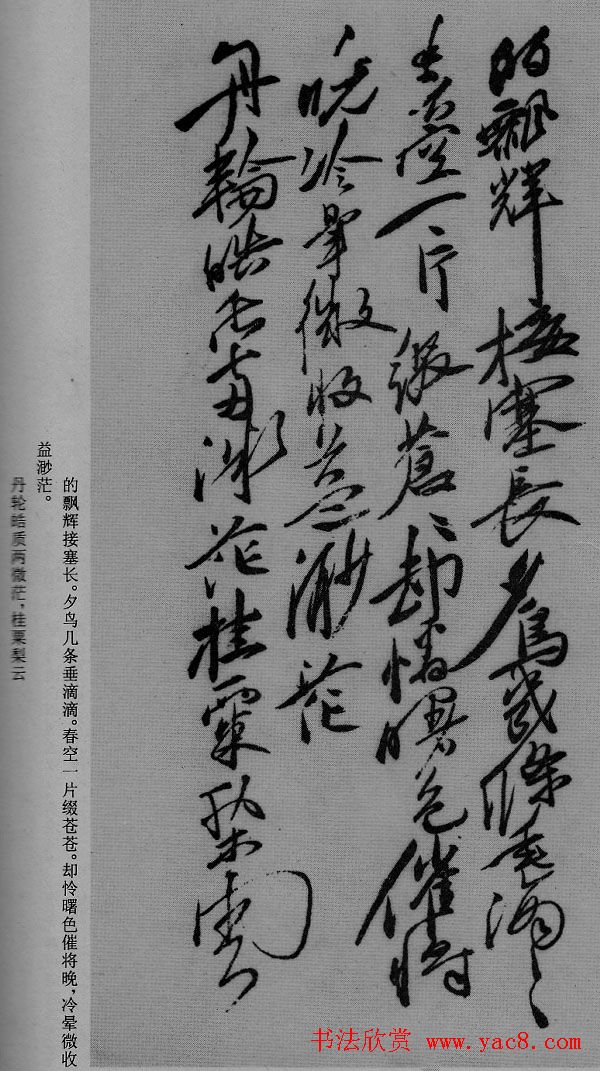 的飄輝接塞長夕鳥幾條垂滴滴
春空一片綴蒼蒼却憐曙色催將
晚冷暈微收益渺茫
丹輪皓質兩微茫桂粟梨雲
的飘辉接塞长。夕鸟几条垂滴滴。春空一片缀苍苍。却怜曙色催将晚，冷晕微收
益渺茫。
丹轮皓质两微茫，桂粟梨云
书法欣赏 www.yac8.com